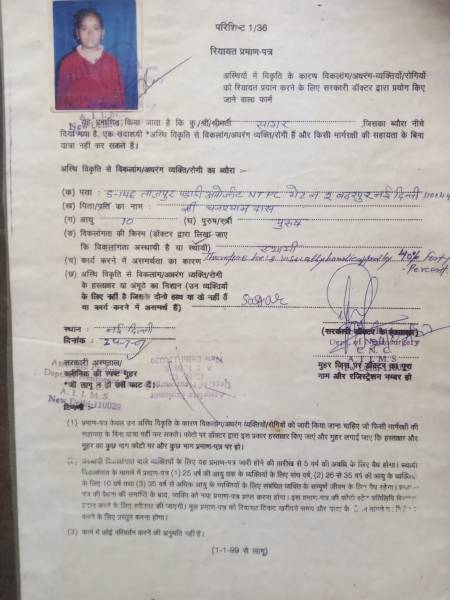 परिशिष्ट 1/36
रियायत प्रमाण-पत्र
अस्थियों में विकृति के कारण विकलांग/अधरंग-व्यक्तियों/रोगियों
को रियायत प्रदान करने के लिए सरकारी डॉक्टर द्वारा प्रयोग किए
जाने वाला फार्म
यह प्रमाणित किया जाता है कि कु./श्री/श्रीमती सागर जिसका ब्यौरा नीचे
दिया गया है, एक सदाशयी *अस्थि विकृति से विकलांग/अधरंग व्यक्ति/रोगी हैं और किसी मार्गरक्षी की सहायता के बिना
यात्रा नहीं कर सकते हैं।
अस्थि विकृति से विकलांग/अधरंग व्यक्ति/रोगी का ब्यौरा :-
(क) पता : S-146 ताजपुर NTPC गेट न 2 बदरपुर नई दिल्ली 110044
(ख) पिता/पति का नाम : श्री दास
(ग) आयु 10 (घ) पुरुष/स्त्री पुरुष
(ङ) विकलांगता की किस्म (डॉक्टर द्वारा लिखा जाए
कि विकलांगता अस्थायी है या स्थायी) स्थायी
(च) कार्य करने में असमर्थता का कारण Therefore he is visually handicapped by 40%
percent
(छ) अस्थि विकृति से विकलांग/अधरंग व्यक्ति/रोगी
के हस्ताक्षर या अंगूठे का निशान (उन व्यक्तियों
के लिए नहीं है जिनके दोनों हाथ या तो नहीं हैं
या कार्य करने में असमर्थ हैं) Sagar
स्थान : नई दिल्ली
दिनांक : 24-7-9
(सरकारी डॉक्टर के हस्ताक्षर)
Dept. of Neurosurgery
C.N.C.
A.I.I.M.S.
मुहर जिस पर डॉक्टर का पूरा
नाम और रजिस्ट्रेशन नम्बर हो
सरकारी अस्पताल/
क्लीनिक की स्पष्ट मुहर
*जो लागू न हो उसे काट दें।
A.I.I.M.S.
New Delhi-110029
टिप्पणी :-
(1) प्रमाण-पत्र केवल उन अस्थि विकृति के कारण विकलांग/अधरंग व्यक्तियों/रोगियों को जारी किया जाना चाहिए जो किसी मार्गरक्षी की
सहायता के बिना यात्रा नहीं कर सकते। फोटो पर डॉक्टर द्वारा इस प्रकार हस्ताक्षर किए जाएं और मुहर लगाई जाए कि हस्ताक्षर और
मुहर का कुछ भाग फोटो पर और कुछ भाग प्रमाण-पत्र पर हो।
(2) अस्थायी विकलांगता वाले व्यक्तियों के लिए यह प्रमाण-पत्र जारी होने की तारीख से 5 वर्ष की अवधि के लिए वैध होगा। स्थायी
विकलांगता के मामले में प्रमाण-पत्र (1) 25 वर्ष की आयु तक के व्यक्तियों के लिए पांच वर्ष, (2) 26 से 35 वर्ष की आयु के व्यक्तियों
के लिए 10 वर्ष तथा (3) 35 वर्ष से अधिक आयु के व्यक्तियों के लिए संबंधित व्यक्ति के सम्पूर्ण जीवन के लिए वैध रहेगा।
पत्र की वैधता की समाप्ति के बाद, व्यक्ति को नया प्रमाण-पत्र प्राप्त करना होगा। इस प्रमाण-पत्र की फोटो प्रतिलिपि
प्रदान करने के लिए स्वीकार की जाएगी। मूल प्रमाण-पत्र को रियायती टिकट खरीदते समय और यात्रा के मांगने पर
करने के लिए प्रस्तुत करना होगा।
(3) फार्म में कोई परिवर्तन करने की अनुमति नहीं है।
(1-1-99 से लागू)